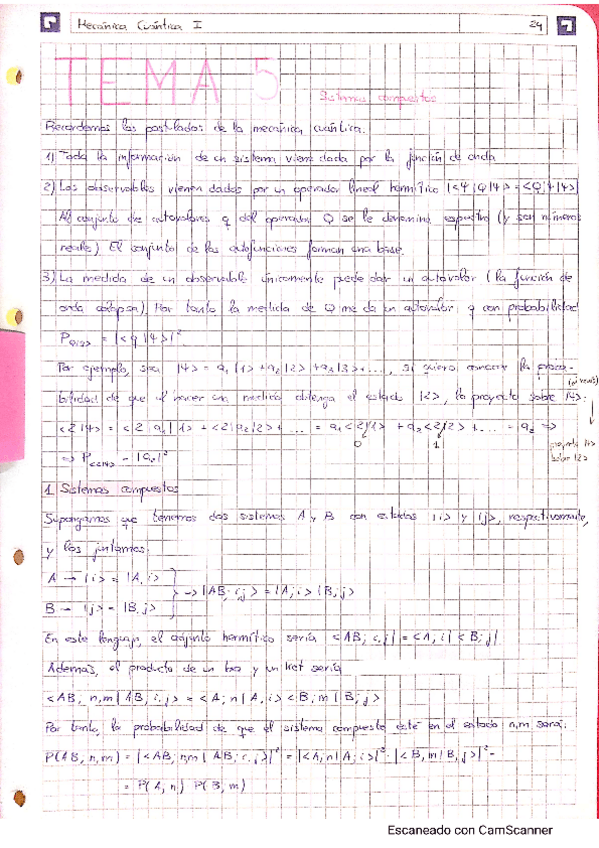 Mecánica Cuántica I 29
TEMA 5
Sistemas compuestos
Recordemos los postulados de la mecánica cuántica.
1) Toda la información de un sistema viene dada por la función de onda
2) Los observables vienen dados por un operador lineal hermítico |<Ψ|Q|Ψ> = <Q|Ψ|Ψ>|
Al conjunto de autovalores q del operador Q se le denomina espectro (y son números
reales). El conjunto de las autofunciones forman una base.
3) La medida de un observable únicamente puede dar un autovalor (la función de
onda colapsa). Por tanto la medida de Q me da un autovalor q con probabilidad
= |<q|Ψ>|²
Por ejemplo, sea |Ψ> = a₁|1> + a₂|2> + a₃|3> + ..., si quiero conocer la proba-
bilidad de que al hacer una medida obtenga el estado |2>, lo proyecto sobre |Ψ>: (al revés)
<2|Ψ> = <2|a₁|1> + <2|a₂|2> + ... = a₁<2|1> + a₂<2|2> + ... = a₂ =>
0 1 proyecto |Ψ>
sobre |2>
1. Sistemas compuestos
Supongamos que tenemos dos sistemas A y B con estados |i> y |j>, respectivamente,
y los juntamos.
A → |i> = |A, i>
→ |AB; i,j> = |A; i> |B; j>
B → |j> = |B, j>
En este lenguaje, el conjunto hermítico sería <AB; i,j| = <A, i| <B; j|
Además, el producto de un bra y un ket sería
<AB, n,m | AB, i, j> = <A; n | A, i> <B; m | B; j>
Por tanto, la probabilidad de que el sistema compuesto esté en el estado n,m será:
P(AB, n,m) = |<AB; n,m | AB; i, j>|² = |<A, n | A; i>|² · |<B, m | B, j>|² =
= P(A, n) P(B, m)
Escaneado con CamScanner